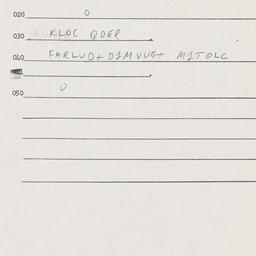 020 0
030 KLOC QDER
040 FARLUD+ DIMVUG+ MITOLC
050 0